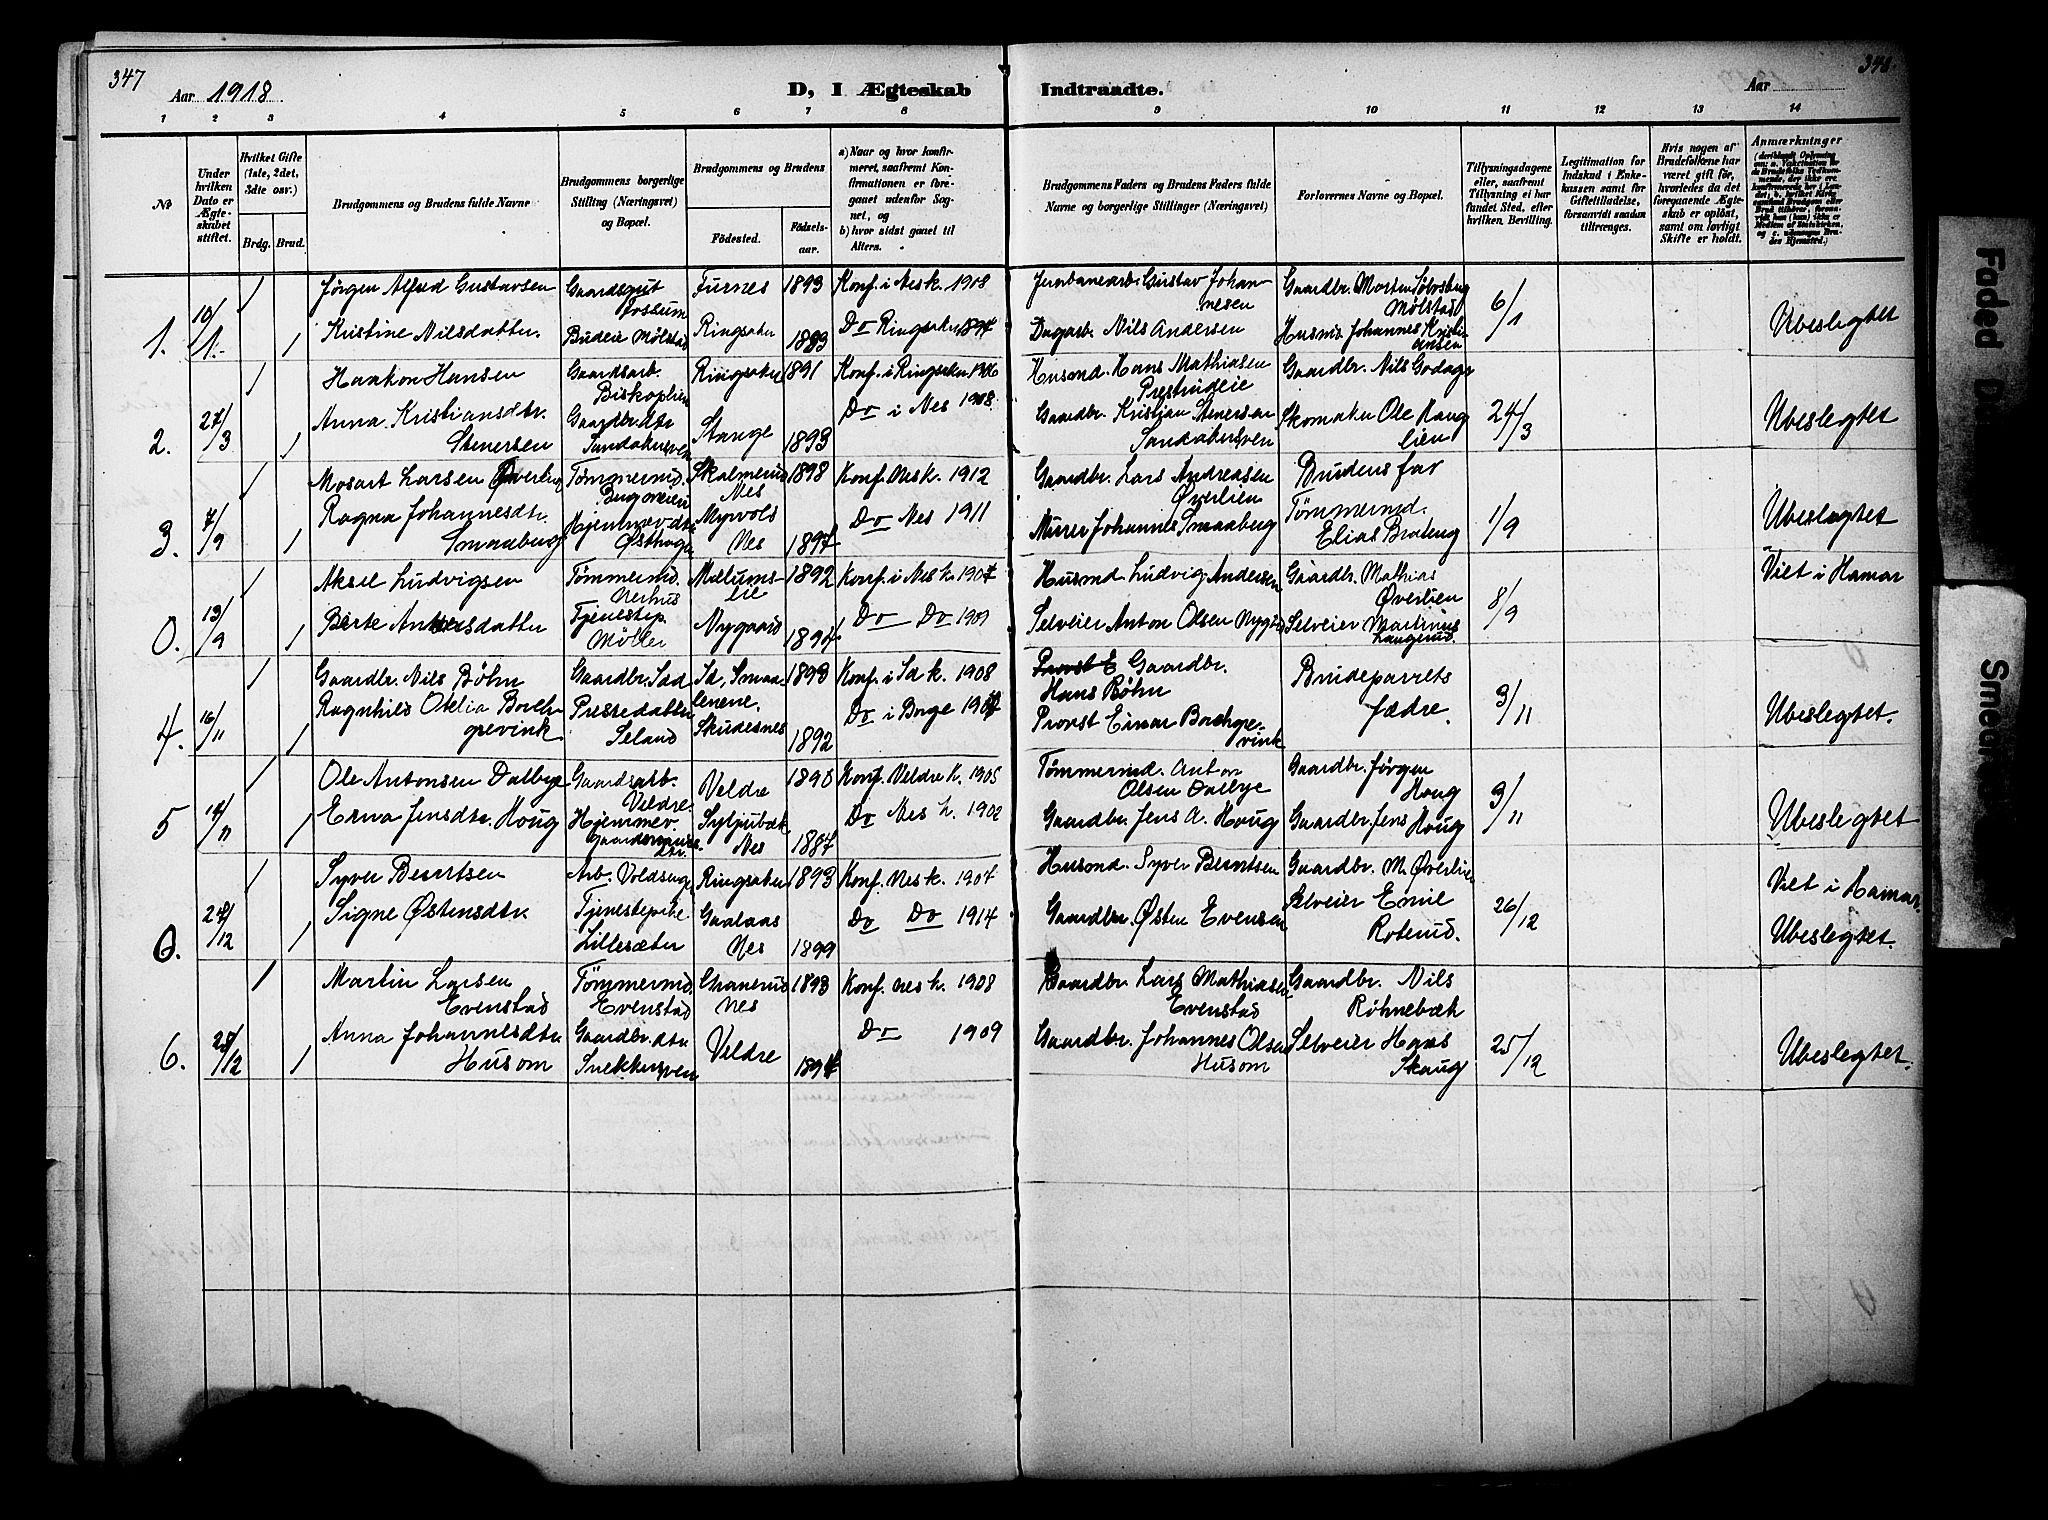 347
348
Aar 1918.
D, I Ægteskab Indtraadte.
Aar
1 2 3 4 5 6 7 8 9 10 11 12 13 14
No
Under hvilken Dato er Ægteskabet stiftet.
Hvilket Gifte (1ste, 2det, 3dte osv.)
Brdg. Brud.
Brudgommens og Brudens fulde Navne
Brudgommens borgerlige Stilling (Næringsvei) og Bopæl.
Brudgommens og Brudens
Födested.
Födselsaar.
a) Naar og hvor konfirmeret, saafremt Konfirmationen er foregaaet udenfor Sognet, og
b) hvor sidst gaaet til Alters.
Brudgommens Faders og Brudens Faders fulde Navne og borgerlige Stillinger (Næringsvei)
Forlovernes Navne og Bopæl.
Tillysningsdagene eller, saafremt Tillysning ei har fundet Sted, efter hvilken Bevilling.
Legitimation for Indskud i Enkekassen samt for Giftetilladelse, forsaavidt saadan tiltrænges.
Hvis nogen af Brudefolkene har været gift för, hvorledes da det foregaaende Ægteskab er oplöst, samt om lovligt Skifte er holdt.
Anmærkninger
1. 10/1. /
Jørgen Alfred Gustavsen Gaardsgut Fossum Furnes 1893 Konf. i Nes k. 1908 Jernbanearb. Gustav Johannesen Gaardbr. Morten Mølstad 6/1 Ubeslegtet
Kristine Nilsdatter. Budeie Mølstad Ringsaker 1883 Do Ringsaker Dagarb. Nils Andersen Husmd. Johannes Kristiansen
2. 27/3 /
Haakon Hansen Gaardsarb. Biskoplien Ringsaker 1891 Konf. i Ringsaker 1906 Husmd. Hans Mathiasen Prestrudeie Gaardbr. Nils Godager 24/3 Ubeslegtet
Anna Kristiansdtr. Stenersen Gaardbr.dtr Sandakersven Stange 1893 Do i Nes 1908. Gaardbr. Kristian Stenersen Sandakersven Skomaker Ole Hauglien
3. 7/9 /
Mosart Larsen Øverlien Tømmermd. Skalmerud Nes 1898 Konf. Nes k. 1912 Gaardbr. Lars Andreasen Øverlien Brudens far 1/9 Ubeslegtet
Ragna Johannesdtr. Smaaberg Hjemmev.dtr Østhagen Myrvold Nes 1897 Do Nes 1911 Murer Johannes Smaaberg Tømmermd. Elias Brateng
0. 13/9 /
Aksel Ludvigsen Tømmermd. Nerhus Mælumseie 1892 Konf. i Nes k. 1907 Husmd. Ludvig Andersen Gaardbr. Mathias Øverlien 8/9 Viet i Hamar
Berte Antonsdatter Tjenestep. Møller Nygaard 1894 Do Do 1909 Selveier Anton Olsen Nygrd Selveier Martinius Haugerud.
4. 16/11 /
Gaardbr. Nils Bøhn Gaardbr. Idd Id, Smaalenene. 1893 Konf. i Id k. 1908 Provst E Gaardbr. Hans Bøhn Brudeparrets fædre. 3/11 Ubeslegtet.
Ragnhild Otelia Borchgrevink Prestedatter Seland Skudesnes 1892 Do i Borge 1907 Provst Einar Borchgrevink
5 14/11 /
Ole Antonsen Dalbye Gaardsarb. Veldre Veldre 1890 Konf. Veldre k. 1905 Tømmermd. Anton Olsen Dalbye Gaardbr. Jørgen Houg 3/11 Ubeslegtet
Erna Jensdtr. Houg Hjemmev. Gaardmandsdtr. Syljubæk Nes 1887 Do Nes k. 1902 Gaardbr. Jens A. Houg Gaardbr. Jens Houg
0. 27/12 /
Syver Berntsen Arb. Voldsenge Ringsaker 1893 Konf. Nes k. 1907 Husmd. Syver Berntsen Gaardbr. M. Øverlien 26/12 Viet i Hamar.
Signe Østensdtr. Tjenestepike Lillesæter Gaalaas Nes 1899 Do Do 1914 Gaardbr. Østen Evensen Selveier Emil Roterud. Ubeslegtet.
6. 28/12 /
Martin Larsen Evenstad Tømmermd. Evenstad Granerud Nes 1893 Konf. Nes k. 1908 Gaardbr. Lars Mathiasen Evenstad Gaardbr. Nils Røhnebæk 25/12 Ubeslegtet.
Anna Johannesdtr. Husom Gaardbr.dtr Snekkersven Veldre 1894 Do 1909 Gaardbr. Johannes Olsen Husom Selveier Hans Skaug
Faded
Smeared